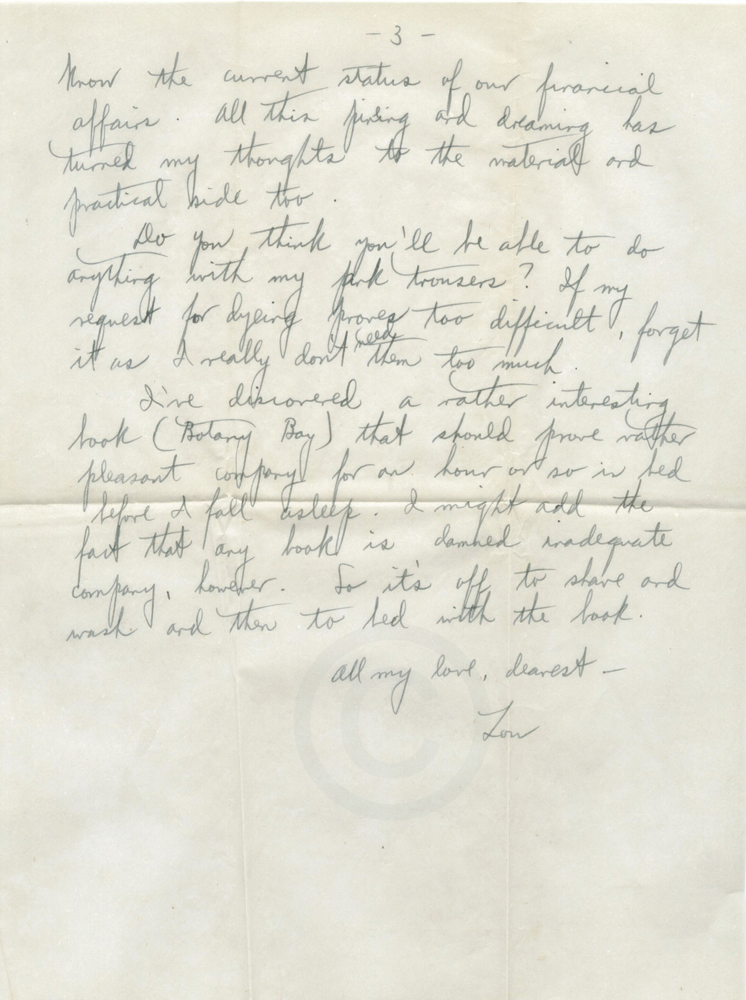 - 3 -
know the current status of our financial
affairs. All this pining and dreaming has
turned my thoughts to the material and
practical side too.
Do you think you'll be able to do
anything with my pink trousers? If my
request for dyeing proves too difficult, forget
it as I really don't need them too much.
I've discovered a rather interesting
book (Botany Bay) that should prove rather
pleasant company for an hour or so in bed
before I fall asleep. I might add the
fact that any book is damned inadequate
company, however. So it's off to shave and
wash and then to bed with the book.
All my love, dearest -
Lou
©